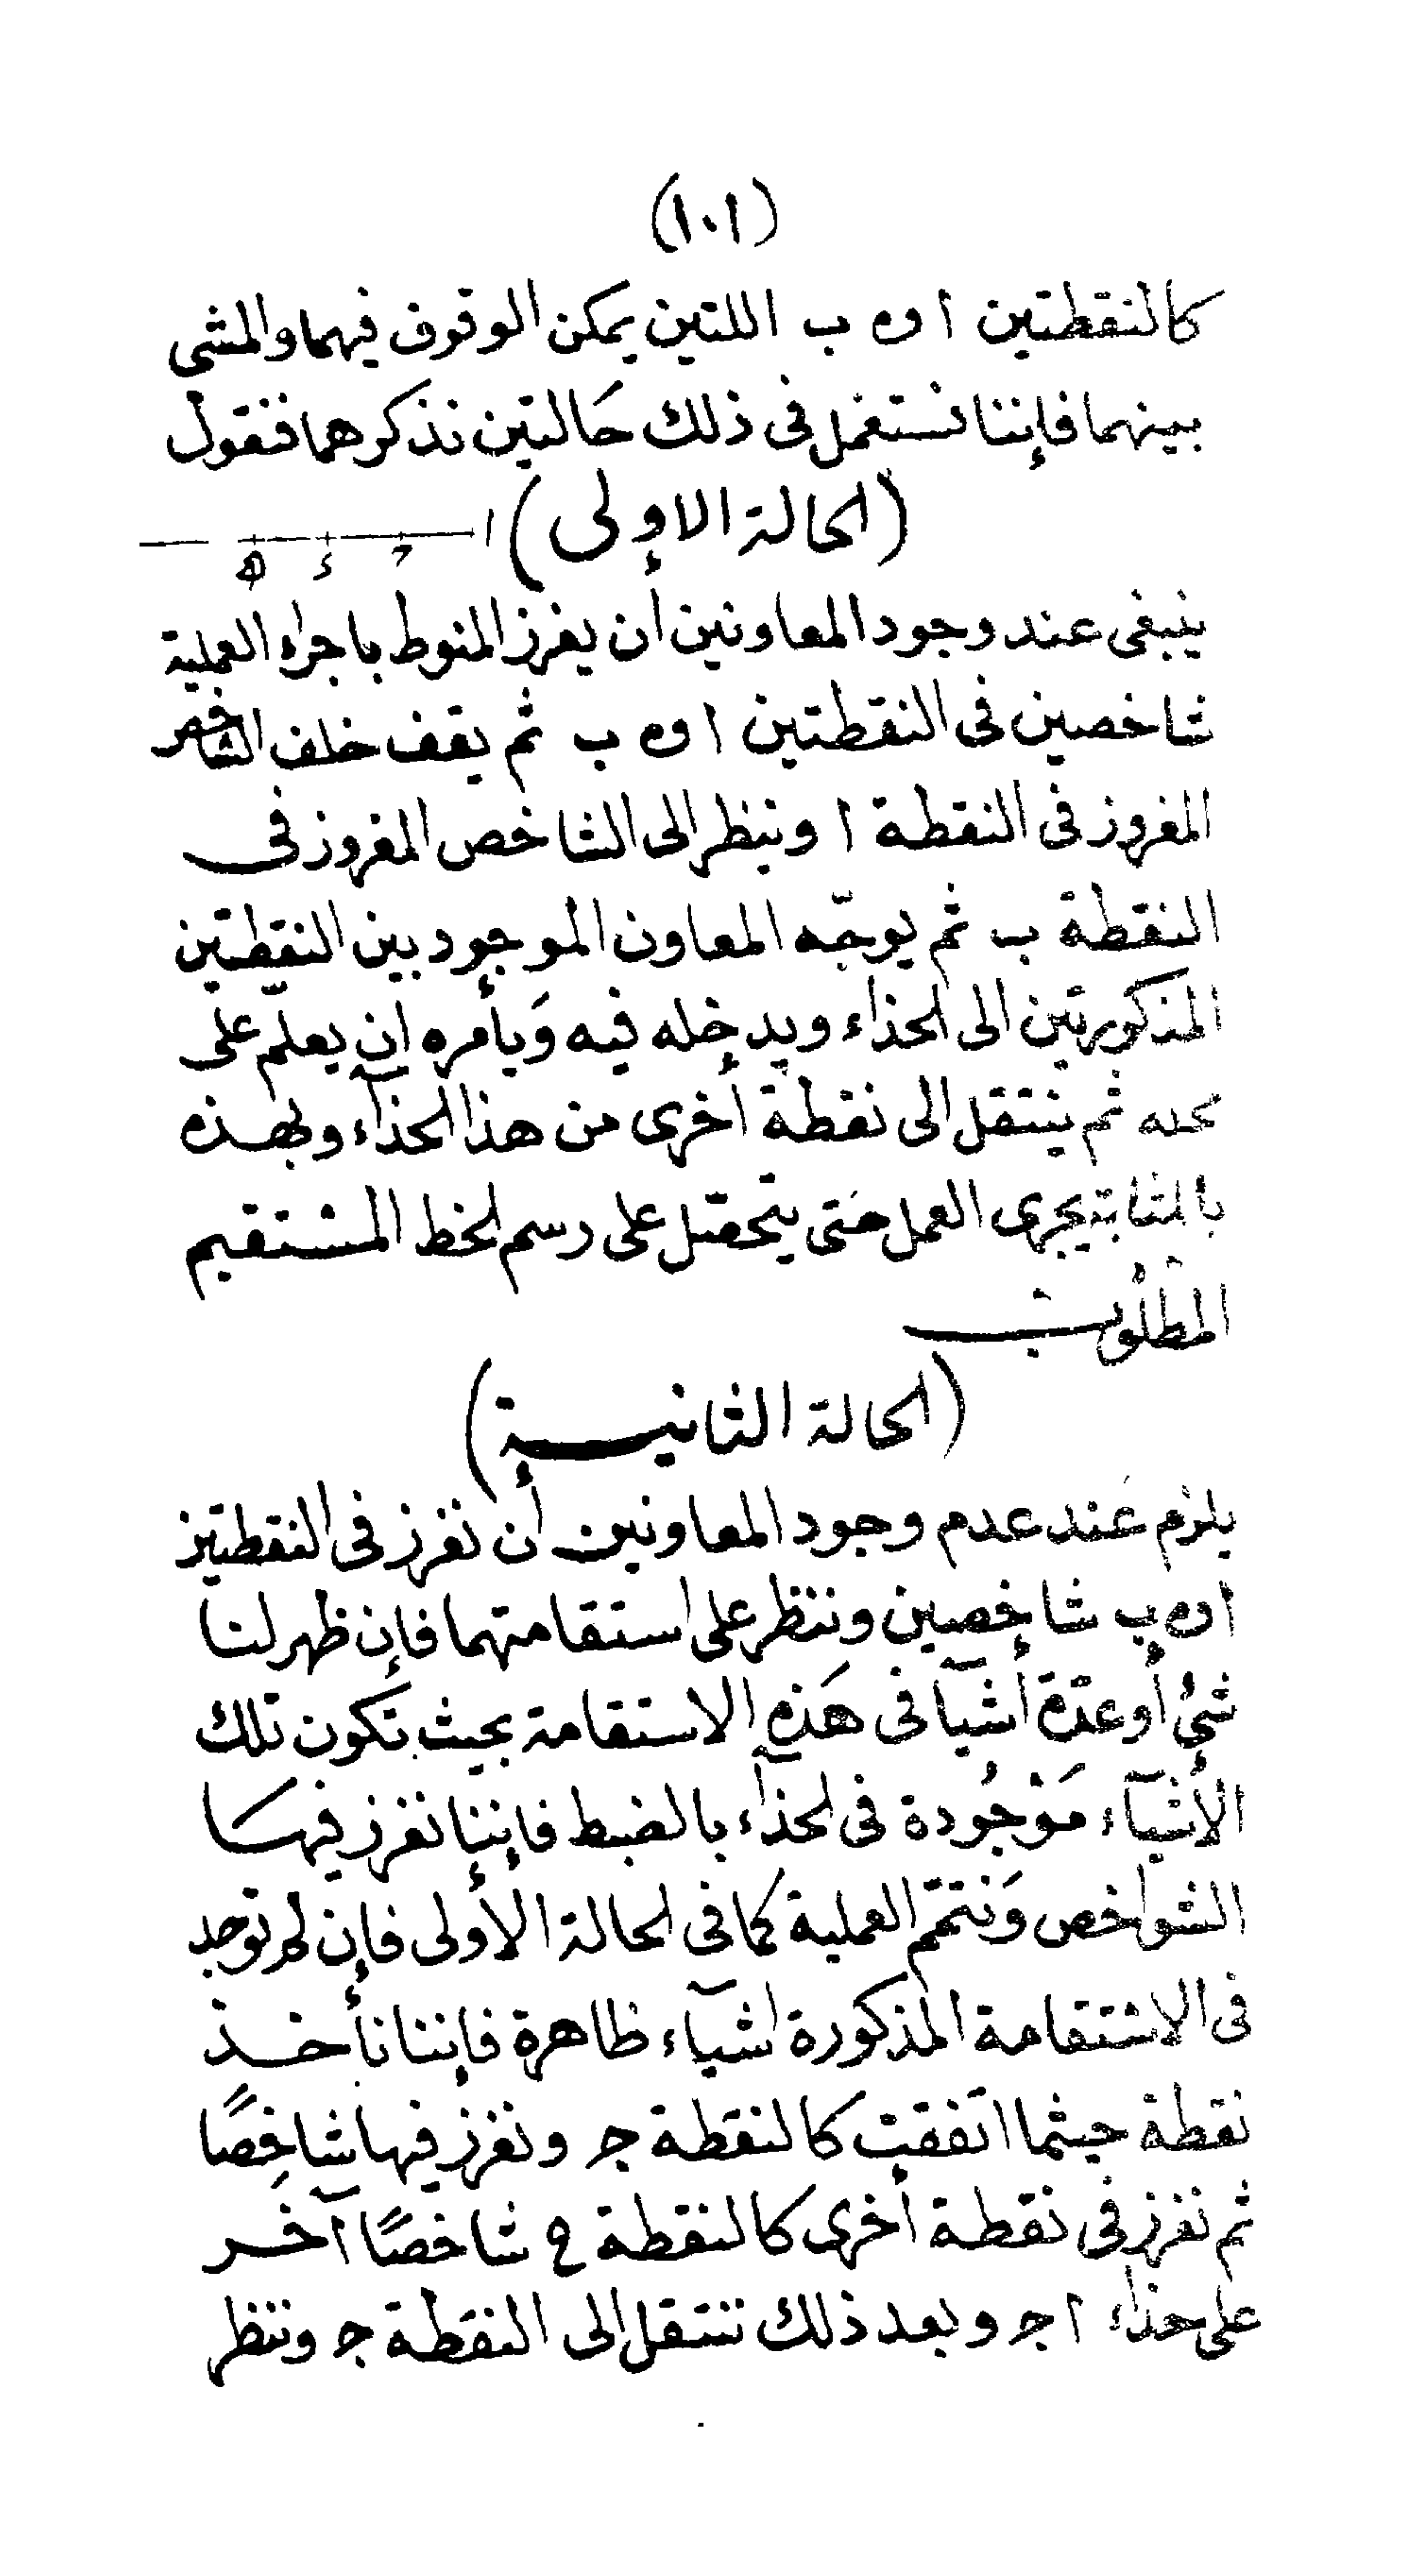 (١٠١)
كالنقطتين ا و ه ب اللتين يمكن الوقوف فيهما والمشى
بينهما فإننا نستعمل فى ذلك حَالتين نذكرهما فنقول
(الحالة الاولى) ا
ينبغى عند وجود المعاونين أن يغرز المنوط باجراء العملية
شاخصين فى النقطتين ا و ه ب ثم يقف خلف الشاخص
المغروز فى النقطة ا وينظر الى الشاخص المغروز فى
النقطة ب ثم يوجّه المعاون الموجود بين النقطتين
المذكورتين الى الحذاء ويدخله فيه وَيأمره ان يعلّم على
محله ثم ينتقل الى نقطة أخرى من هذا الحذآء وبهذه
بالمثابة يجرى العمل حَتى يتحصّل على رسم الخط المستقيم
المطلُوب
(الحالة الثانية)
يلزم عَند عدم وجود المعاونين أن نغرز فى النقطتين
ا و ه ب شاخصين وننظر على استقامتهما فإن ظهر لنا
شئ أو عدّة أشيآ فى هَذه الاستقامة بحيث تكون تلك
الأشيآء مَوْجُودة فى الحذآء بالضبط فإننا نغرز فيهَا
الشواخص وَنتمّم العملية كما فى الحالة الأولى فإن لم توجد
فى الاستقامة المذكورة اشيآء ظاهرة فإننا نأخذ
نقطة حيثما اتفقت كالنقطة ج ونغرز فيها شاخِصًا
ثم نغرز فى نقطة أخرى كالنقطة ح شاخصًا آخر
على حذاء ا ج وبعد ذلك ننتقل الى النقطة ج وننظر